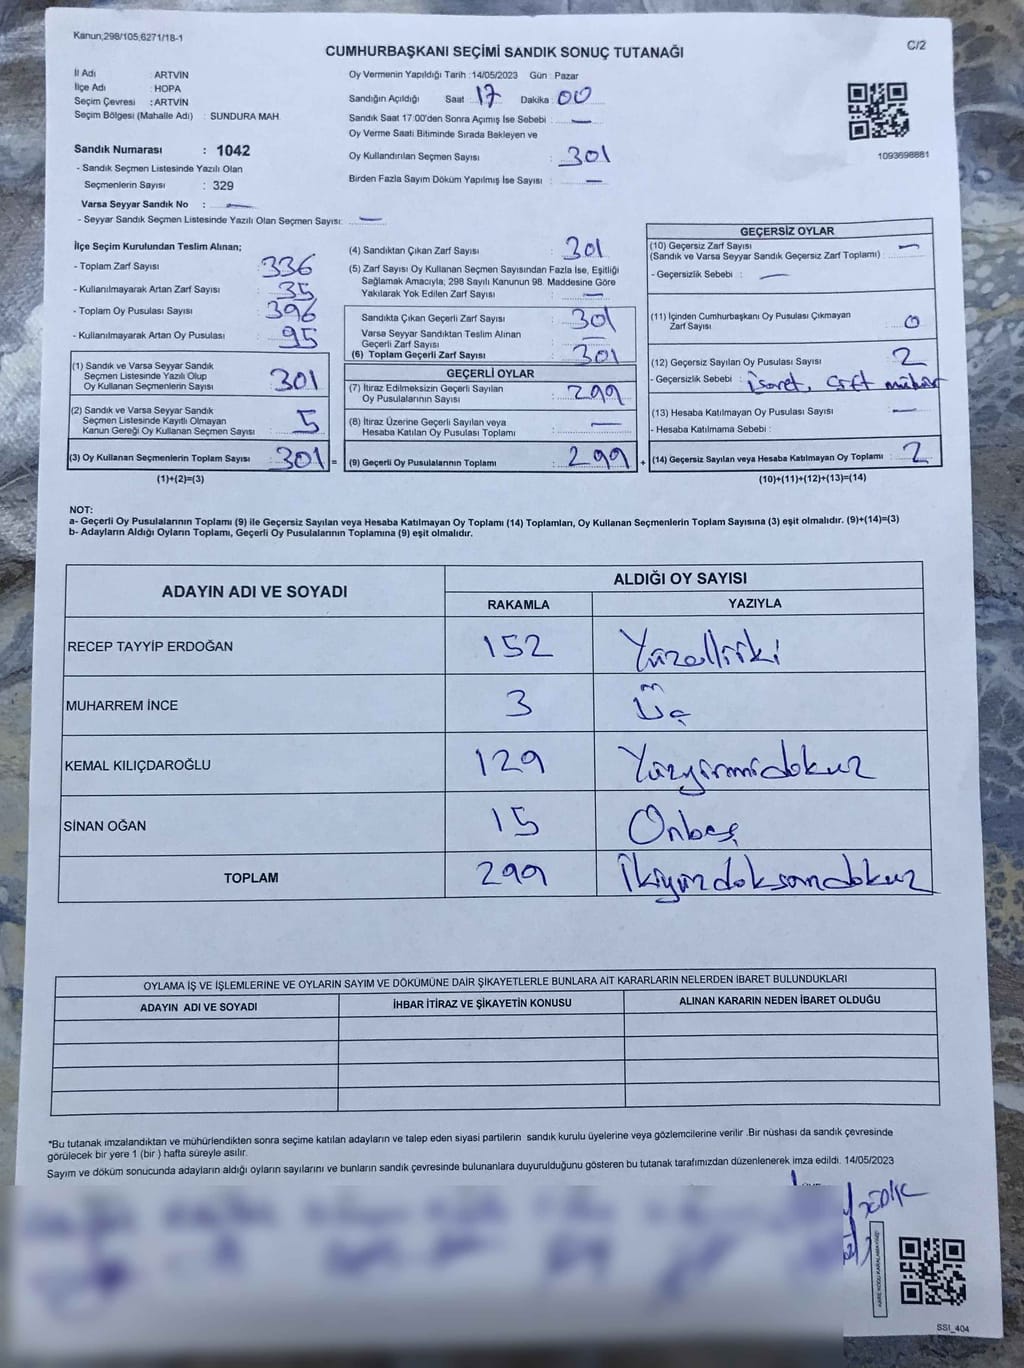 Kanun,298/105,6271/18-1
C/2
CUMHURBAŞKANI SEÇİMİ SANDIK SONUÇ TUTANAĞI
İl Adı : ARTVİN
İlçe Adı : HOPA
Seçim Çevresi : ARTVİN
Seçim Bölgesi (Mahalle Adı) : SUNDURA MAH.
Sandık Numarası : 1042
- Sandık Seçmen Listesinde Yazılı Olan
Seçmenlerin Sayısı : 329
Varsa Seyyar Sandık No : —
- Seyyar Sandık Seçmen Listesinde Yazılı Olan Seçmen Sayısı: —
Oy Vermenin Yapıldığı Tarih :14/05/2023 Gün : Pazar
Sandığın Açıldığı Saat 17 Dakika 00
Sandık Saat 17:00'den Sonra Açımış İse Sebebi : —
Oy Verme Saati Bitiminde Sırada Bekleyen ve
Oy Kullandırılan Seçmen Sayısı : 301
Birden Fazla Sayım Döküm Yapılmış İse Sayısı : —
1093698881
İlçe Seçim Kurulundan Teslim Alınan;
- Toplam Zarf Sayısı : 336
- Kullanılmayarak Artan Zarf Sayısı : 35
- Toplam Oy Pusulası Sayısı : 396
- Kullanılmayarak Artan Oy Pusulası : 95
(1) Sandık ve Varsa Seyyar Sandık
Seçmen Listesinde Yazılı Olup
Oy Kullanan Seçmenlerin Sayısı : 301
(2) Sandık ve Varsa Seyyar Sandık
Seçmen Listesinde Kayıtlı Olmayan
Kanun Gereği Oy Kullanan Seçmen Sayısı : 5
(3) Oy Kullanan Seçmenlerin Toplam Sayısı : 301 =
(1)+(2)=(3)
(4) Sandıktan Çıkan Zarf Sayısı : 301
(5) Zarf Sayısı Oy Kullanan Seçmen Sayısından Fazla İse, Eşitliği
Sağlamak Amacıyla; 298 Sayılı Kanunun 98. Maddesine Göre
Yakılarak Yok Edilen Zarf Sayısı : —
Sandıkta Çıkan Geçerli Zarf Sayısı : 301
Varsa Seyyar Sandıktan Teslim Alınan
Geçerli Zarf Sayısı : —
(6) Toplam Geçerli Zarf Sayısı : 301
GEÇERLİ OYLAR
(7) İtiraz Edilmeksizin Geçerli Sayılan
Oy Pusulalarının Sayısı : 299
(8) İtiraz Üzerine Geçerli Sayılan veya
Hesaba Katılan Oy Pusulası Toplamı : —
(9) Geçerli Oy Pusulalarının Toplamı : 299 +
GEÇERSİZ OYLAR
(10) Geçersiz Zarf Sayısı
(Sandık ve Varsa Seyyar Sandık Geçersiz Zarf Toplamı) : —
- Geçersizlik Sebebi : —
(11) İçinden Cumhurbaşkanı Oy Pusulası Çıkmayan
Zarf Sayısı : 0
(12) Geçersiz Sayılan Oy Pusulası Sayısı : 2
- Geçersizlik Sebebi : İşaret, Çift mühür
(13) Hesaba Katılmayan Oy Pusulası Sayısı : —
- Hesaba Katılmama Sebebi :
(14) Geçersiz Sayılan veya Hesaba Katılmayan Oy Toplamı : 2
(10)+(11)+(12)+(13)=(14)
NOT:
a- Geçerli Oy Pusulalarının Toplamı (9) ile Geçersiz Sayılan veya Hesaba Katılmayan Oy Toplamı (14) Toplamları, Oy Kullanan Seçmenlerin Toplam Sayısına (3) eşit olmalıdır. (9)+(14)=(3)
b- Adayların Aldığı Oyların Toplamı, Geçerli Oy Pusulalarının Toplamına (9) eşit olmalıdır.
ADAYIN ADI VE SOYADI
ALDIĞI OY SAYISI
RAKAMLA YAZIYLA
RECEP TAYYİP ERDOĞAN 152 Yüzelliiki
MUHARREM İNCE 3 Üç
KEMAL KILIÇDAROĞLU 129 Yüzyirmidokuz
SİNAN OĞAN 15 Onbeş
TOPLAM 299 İkiyüzdoksandokuz
OYLAMA İŞ VE İŞLEMLERİNE VE OYLARIN SAYIM VE DÖKÜMÜNE DAİR ŞİKAYETLERLE BUNLARA AİT KARARLARIN NELERDEN İBARET BULUNDUKLARI
ADAYIN ADI VE SOYADI İHBAR İTİRAZ VE ŞİKAYETİN KONUSU ALINAN KARARIN NEDEN İBARET OLDUĞU
*Bu tutanak imzalandıktan ve mühürlendikten sonra seçime katılan adayların ve talep eden siyasi partilerin sandık kurulu üyelerine veya gözlemcilerine verilir .Bir nüshası da sandık çevresinde
görülecek bir yere 1 (bir ) hafta süreyle asılır.
Sayım ve döküm sonucunda adayların aldığı oyların sayılarını ve bunların sandık çevresinde bulunanlara duyurulduğunu gösteren bu tutanak tarafımızdan düzenlenerek imza edildi. 14/05/2023
SSI_404